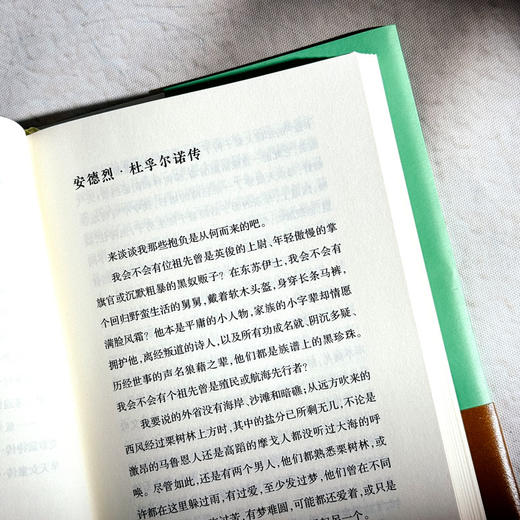 安德烈·杜孚尔诺传
来谈谈我那些抱负是从何而来的吧。
我会不会有位祖先曾是英俊的上尉、年轻傲慢的掌
旗官或沉默粗暴的黑奴贩子？在东苏伊士，我会不会有
个回归野蛮生活的舅舅，戴着软木头盔，身穿长条马裤，
满脸风霜？他本是平庸的小人物，家族的小字辈却情愿
拥护他，离经叛道的诗人，以及所有功成名就、阴沉多疑、
历经世事的声名狼藉之辈，他们都是族谱上的黑珍珠。
我会不会有个祖先曾是殖民或航海先行者？
我要说的外省没有海岸、沙滩和暗礁；从远方吹来的
西风经过栗树林上方时，其中的盐分已所剩无几，不论是
激昂的马鲁恩人还是高蹈的摩戈人都没听过大海的呼
唤。尽管如此，还是有两个男人，他们都熟悉栗树林，或
许都在这里躲过雨，有过爱，至少发过梦，他们曾在不同
有梦难圆，可能都还爱着，或只是